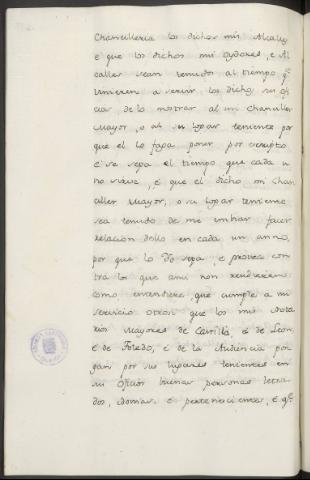 Chancilleria los dichos mis Alcalles
é que los dichos mis oydores, é Al
calles sean tenudos al tiempo qe
vinieren a servir los dichos sus ofi
cios de lo mostrar al mi Chanciller
Mayor, o al su lugar teniente por
que él lo faga poner por escripto
é se sepa el tiempo que cada u
no sirve, é que el dicho mi Chan
ciller Mayor, o su lugar teniente
sea tenudo de me imbiar facer
relacion dello en cada un anno,
por que lo Yo sepa, é provea con
tra los que ansi non rendieren
como entendiere, que cumple a mi
servicio otrosi que los mis Nota
rios mayores de Castilla, é de Leon,
é de Toledo, é de la Audiencia pon
gan por sus lugares tenientes en
sus Oficios buenas personas letra
dos, idoneas é pertenecientes, é qe